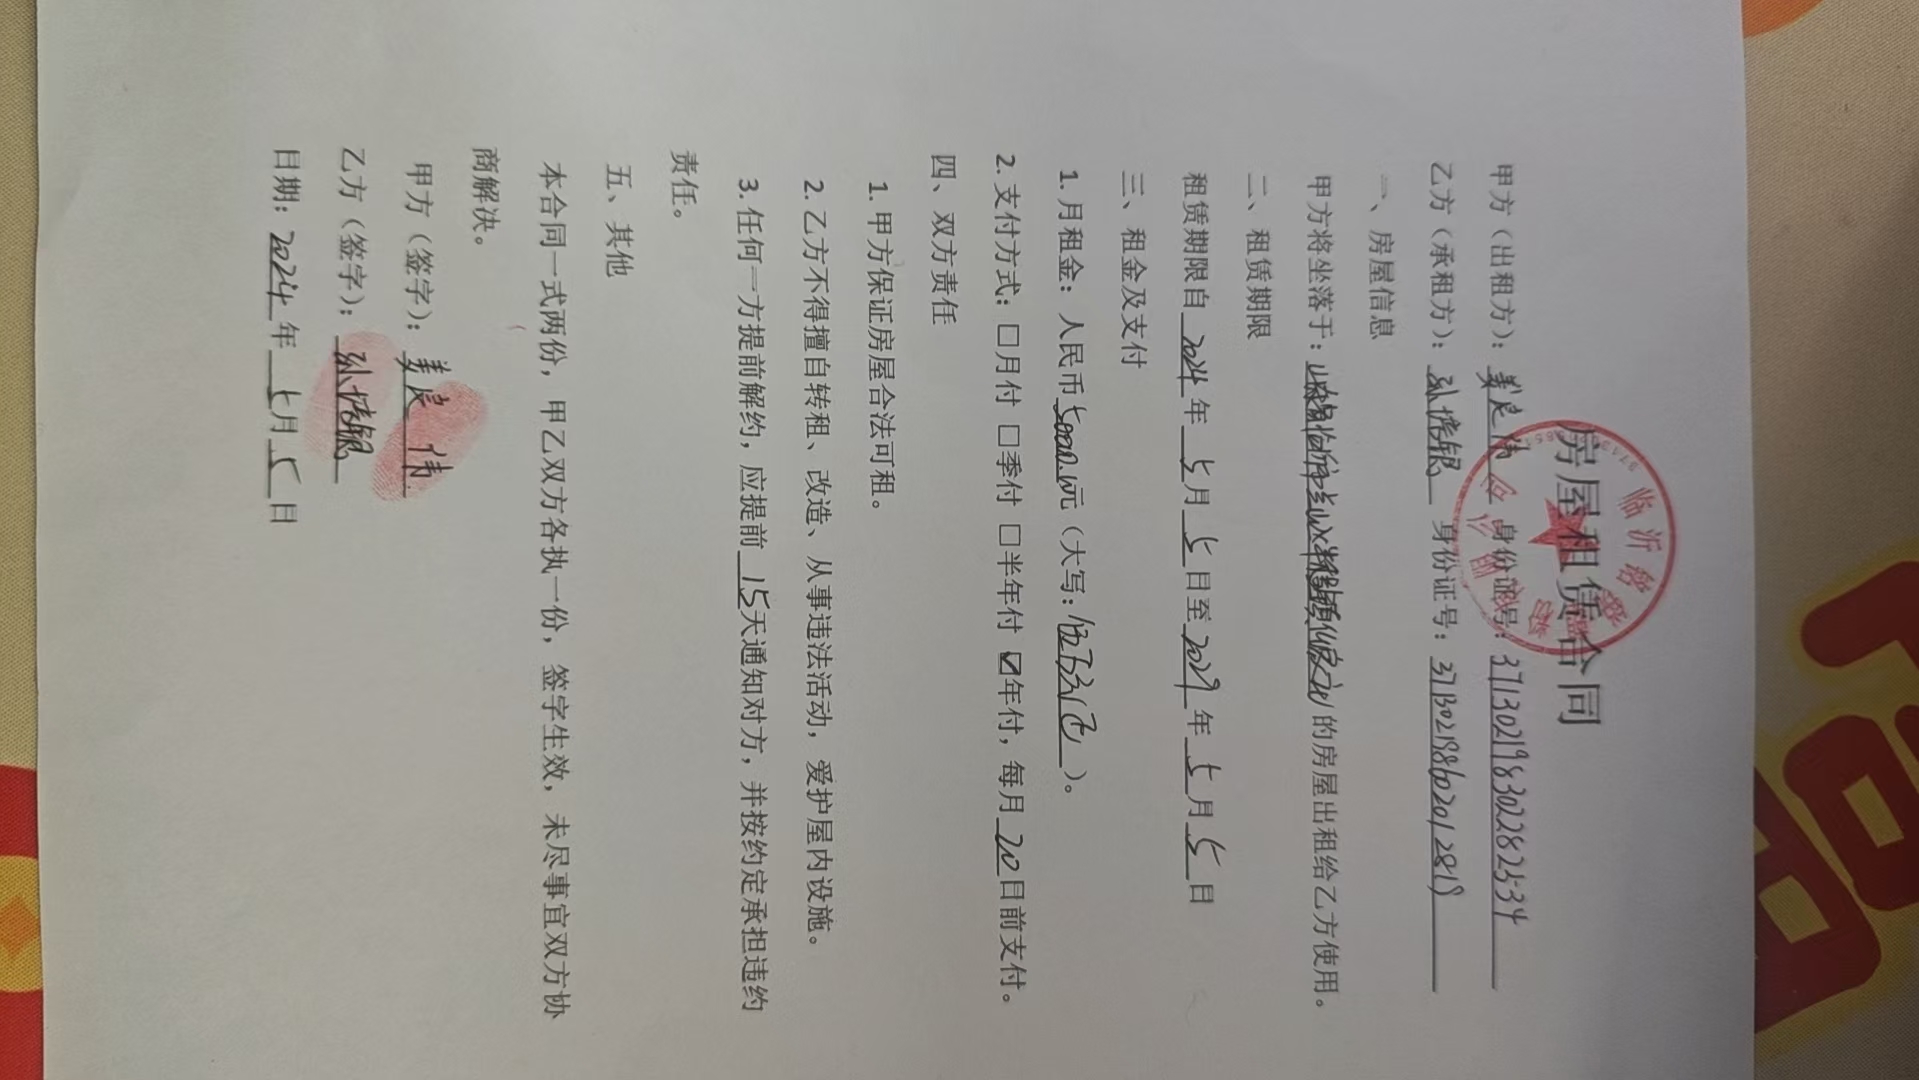 房屋租赁合同
甲方（出租方）：姜良伟 身份证号：371302198302282534
乙方（承租方）：孙 银 身份证号：371302198602012819
一、房屋信息
甲方将坐落于：的房屋出租给乙方使用。
二、租赁期限
租赁期限自2024年5月5日至2029年5月5日
三、租金及支付
1.月租金：人民币5000.元（大写：伍）。
2.支付方式：□月付 □季付 □半年付 ☑年付，每月20日前支付。
四、双方责任
1.甲方保证房屋合法可租。
2.乙方不得擅自转租、改造、从事违法活动，爱护屋内设施。
3.任何一方提前解约，应提前15天通知对方，并按约定承担违约
责任。
五、其他
本合同一式两份，甲乙双方各执一份，签字生效，未尽事宜双方协
商解决。
甲方（签字）：姜良伟
乙方（签字）：孙 银
日期：2024年5月5日
临沂
公司